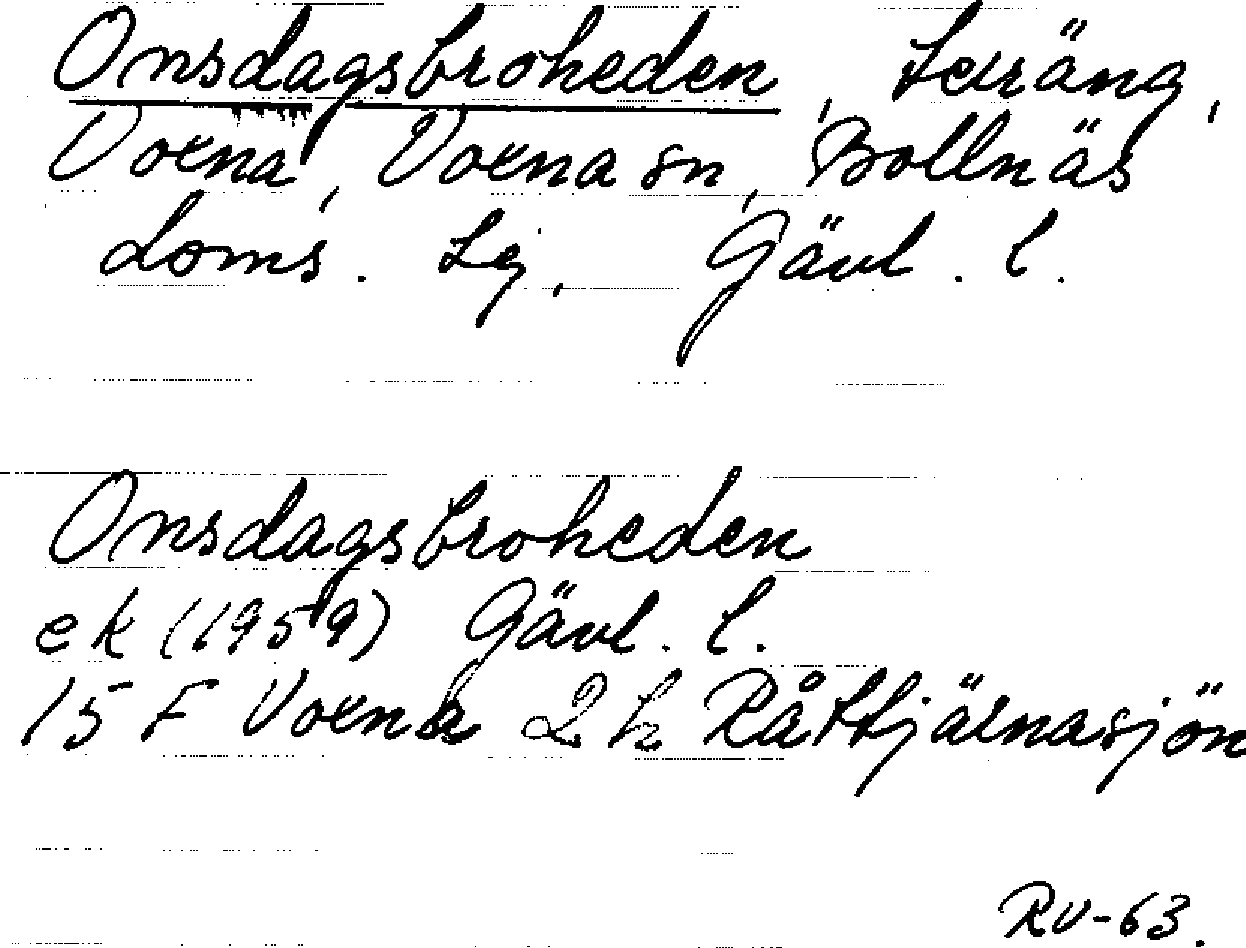 Onsdagsbroheden, terräng,
Voxna, Voxna sn, Bollnäs
doms. lg, Gävl. l.
Onsdagsbroheden
ek (1959) Gävl. l.
15 F Voxna 2 h Råttjärnasjön
RV-63.